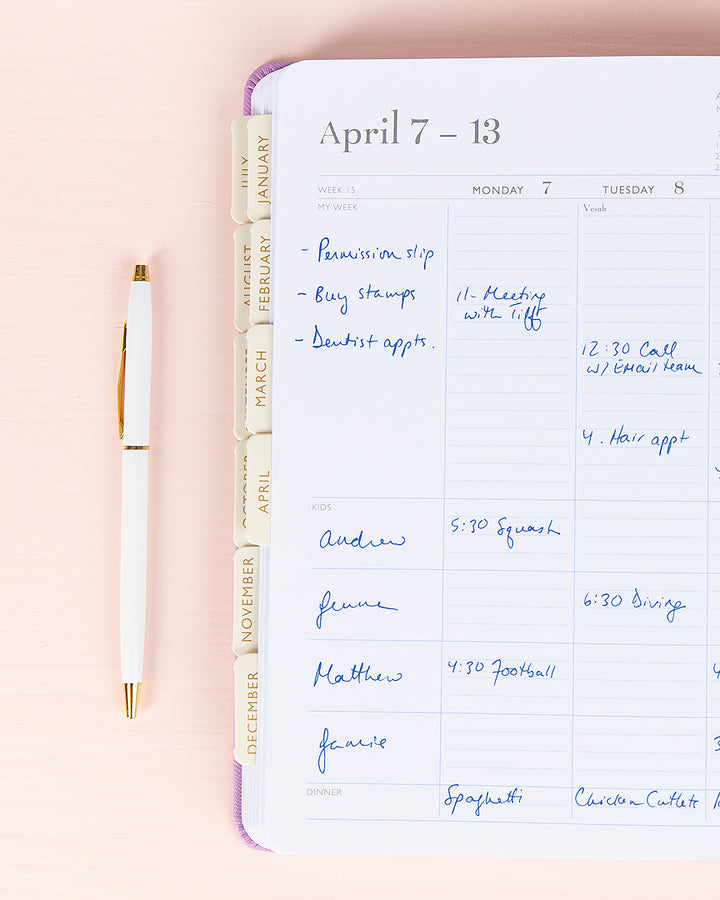 April 7 – 13
WEEK 15
MONDAY 7
TUESDAY 8
MY WEEK
Vesak
- Permission slip
- Buy stamps
- Dentist appts.
11- Meeting
with Tifft
12:30 Call
w/ EMail team
4. Hair appt
KIDS
Andrew
5:30 Squash
6:30 Diving
Matthew
4:30 Football
Jamie
DINNER
Spaghetti
Chicken Cutlets
JULY
JANUARY
AUGUST
FEBRUARY
MARCH
OCTOBER
APRIL
NOVEMBER
DECEMBER